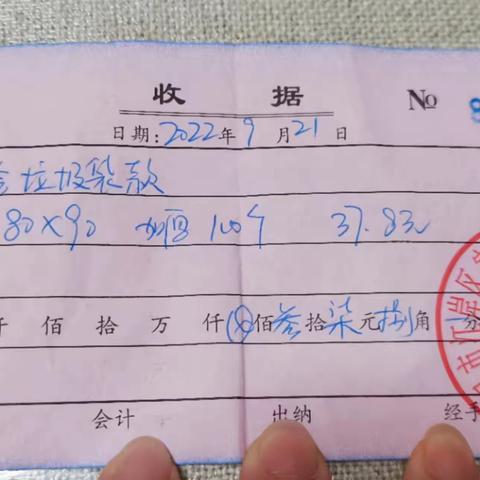 收 据 № 9
日期:2022年9月21日
垃圾袋款
80×90 加厚 100个 37.8元
仟 佰 拾 万 仟 ⊗ 佰 叁 拾 柒 元 捌 角 分
会计 出纳 经手